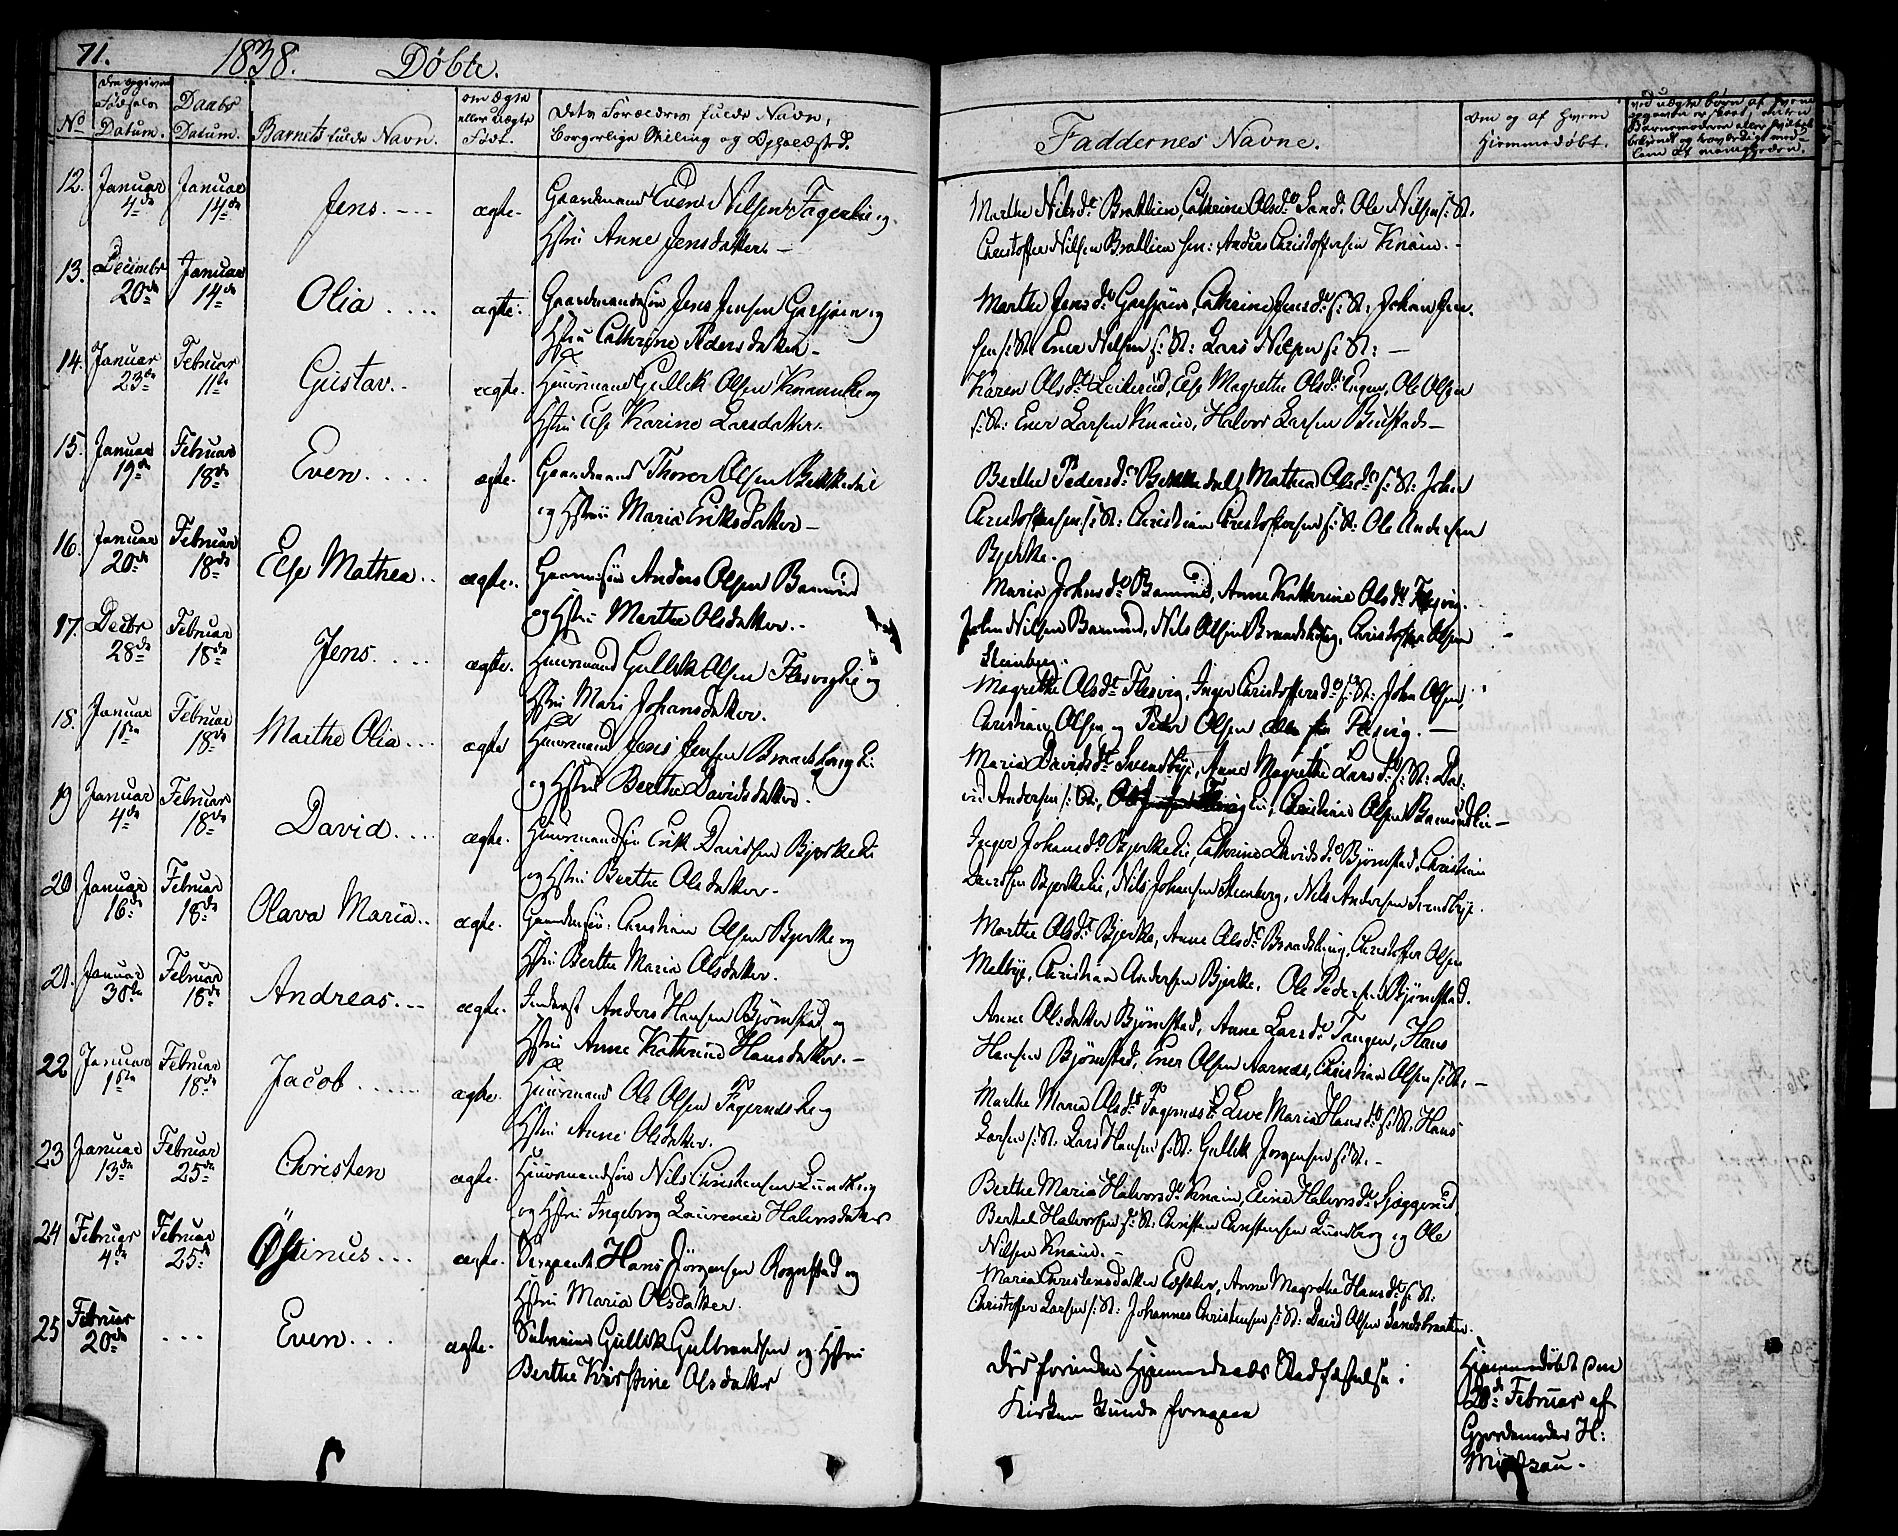 71. 1838. Døbte.
No
Datum.
Daabs Datum.
Barnets fulde Navn.
om ægte eller uægte Født.
Dets Forældres fulde Navn,
borgerlige Stilling og Opholdsted.
Faddernes Navne.
om og af hvem
hjemmedøbt.
12. Januar 4de Januar 14de Jens. ægte. Gaardmand Even Nilsen Fagerlie og
Hstru Anne Jensdatter.
Marthe Nilsdr Brathien, Cathrine Olsdr Sand, Ole Nilsen s: St.
Christoffer Nilsen Brathien sen: Anders Christoffersen Knain.
13. Decembr 20de Januar 14de Olia ægte. Gaardmandssøn Jens Jensen Gorsjøen og
Hstru Cathrine Pedersdatter.
Marthe Jensdr Gorsjøen, Cathrine Jensdr s: St: Johan Jen-
sen s: St: Ener Nilsen s: St: Lars Nilsen s: St:
14. Januar 23de Februar 11te Gustav. ægte. Huusmand Gullik Olsen Knaineie og
Hstru Else Karine Larsdatter.
Karen Olsdr Leikerud, Else Magrethe Olsdr Engen, Ole Olsen
s: St: Ener Larsen Knain, Halvor Larsen
15. Januar 19de Februar 18de Even. ægte. Gaardmand Thoer Olsen Bekkedal
og Hstru Maria Eriksdatter
Berthe Pedersdr Bekkedal, Mathea Olsdr s: St: John
Christoffersen s: St: Christian Christoffersen s: St: Ole Andersen
Bjerke.
16. Januar 20de Februar 18de Else Mathea ægte. Anders Olsen Bamrud
og Hstru Marthe Olsdatter.
Maria Johnsdr Bamrud, Anne Kathrine Olsdr Flesvig.
John Nilsen Bamrud, Nils Olsen Braadshoug, Christoffer Olsen
Steinberg.
17. Decbr 28de Februar 18de Jens. ægte. Huusmand Gullik Olsen Flesvigeie og
Hstru Mari Johansdatter.
Magrethe Olsdr Flesvig, Inger Christoffersdr s: St: John Olsen,
Christian Olsen og Peder Olsen alle fra Flesvig.
18. Januar 1ste Februar 18de Marthe Olia ægte Huusmand Jens Jensen Braadshougeie
og Hstru Berthe Davidsdatter.
Maria Davidsdr Svendbye, Anne Magrethe Larsdr s: St: Da-
vid Andersen s: St:, Christian Olsen Bamrudeie
19 Januar 4de Februar 18de David. ægte. Huusmandssøn Erik Davidsen Bjerkeeie
og Hstru Berthe Olsdatter.
Inger Johansdr Bjerkeeie, Cathrine Davidsdr Bjørnstad, Christian
Davidsen Bjerkeeie, Nils Johansen Steenberg, Nils Andersen Svendbye.
20 Januar 16de Februar 18de Olava Maria ægte. Christian Olsen Bjerke og
Hstru Berthe Maria Olsdatter.
Marthe Olsdr Bjerke, Anne Olsdr Braadshoug, Christoffer Olsen
Melbye, Christian Andersen Bjerke, Ole Pedersen Bjørnstad.
21. Januar 30te Februar 18de Andreas. ægte. Inderst Anders Hansen Bjørnstad og
Hstru Anne Kathrine Hansdatter.
Anne Olsdatter Bjørnstad, Anne Larsdr Tangen, Hans
Hansen Bjørnstad, Ener Olsen Aarnæs, Christian Olsen s: St.
22 Januar 1ste Februar 18de Jacob ægte. Huusmand Ole Olsen Fagernæseie og
Hstru Anne Olsdatter.
Marthe Maria Olsdr Fagernæs, Live Maria Hansdr s: St: Hans
Larsen s: St. Lars Hansen s: St. Gullik Jørgensen s: St.
23 Januar 13de Februar 25de Christen ægte. Huusmandssøn Nils Christensen Lundberg
og Hstru Ingeborg Laurence Halvorsdatter
Berthe Maria Halvorsdr Knain, Eline Halvorsdr Sjøggerud,
Bertel Halvorsen s: St: Christen Christensen Lundberg og Ole
Nilsen Knain.
24 Februar 4de Februar 25de Østinus ægte. Sergeant Hans Jørgensen Rognstad og
Hstru Maria Olsdatter.
Maria Christensdatter Eskker, Anne Magrethe Hansdr s: St.
Christoffer Larsen s: St: Johannes Christensen s: St: David Olsen Sandsbraaten.
25 Februar 20de Even ægte. Gullik Gulbrandsen og Hstru
Berthe Kirstine Olsdatter
døde forinden Hjemmedaabs Stadfæstelse i
Kirken kunde foregaae
Hjemmedøbt den
20de Februar af
Gjordemoder H: